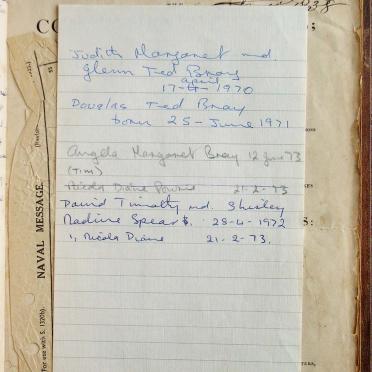 CO
;
Judith Margaret md.
Glenn Ted Bray
april
17-4-1970
Douglas Ted Bray
born 25-June 1971
Angela Margaret Bray 12 June 73
(Tim)
Nicola Diane 21-2-73
David Timothy md. Shirley
Nadine Spears. 28-4-1972
1, Nicola Diane 21-2-73.
NAVAL MESSAGE.
For use with S. 1320b)
S: